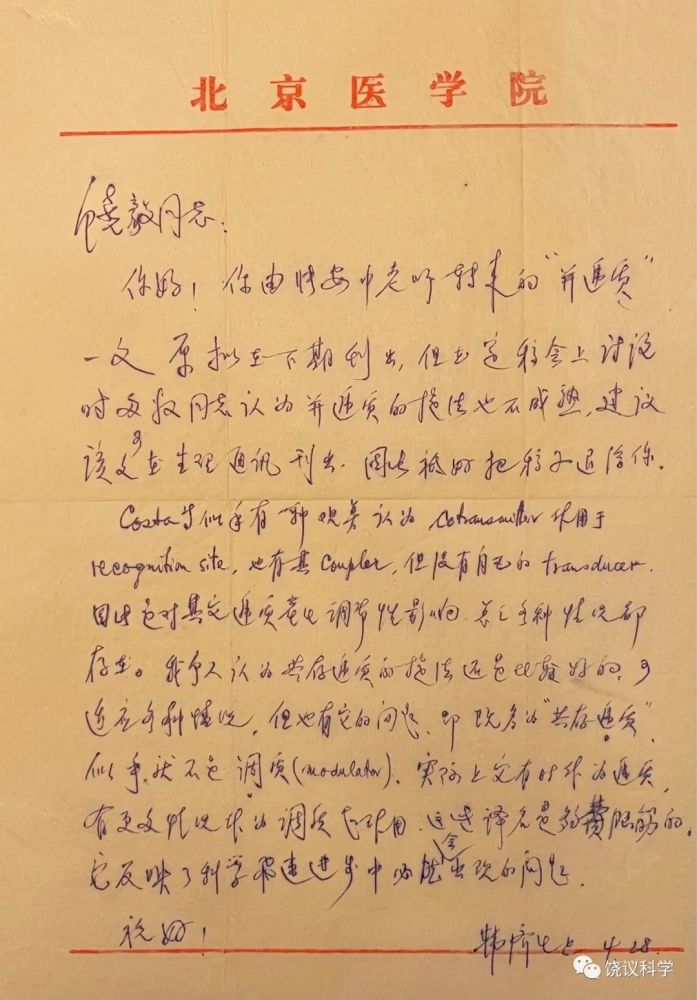 北京医学院
饶毅同志：
你好！你由张安中老师转来的“并递质”
一文原拟在下期刊出，但在定稿会上讨论
时多数同志认为并递质的提法也不成熟，建议
该文可在生理通讯刊出．因此只好把稿子退给你．
Costa等似乎有一种观点认为 cotransmitter 作用于
recognition site，也有其 coupler，但没有自己的 transducer．
因此它对其它递质产生调节性影响．总之多种情况都
存在。我个人认为共存递质的提法还是比较好的，可
适应多种情况，但也有它的问题，即既名为“共存递质”，
似乎就不是调质(modulator)．实际上它有时作为递质，
有更多情况作为调质起作用．这些译名是够费脑筋的，
它反映了科学飞速进步中必然会出现的问题．
祝好！
韩济生上 4.28.
饶议科学